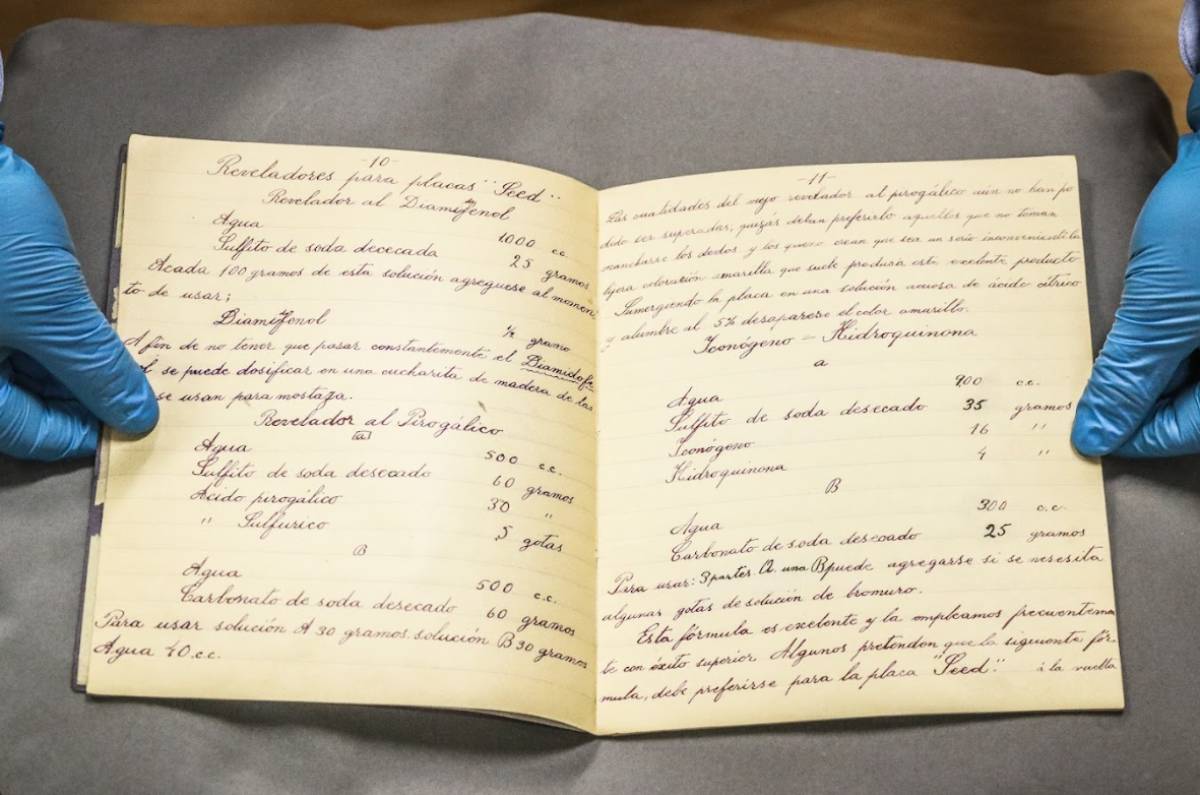 -10-
Reveladores para placas "Seed"
Revelador al Diamifenol
Agua 1000 c.c.
Sulfito de soda dececada 25 gramos
Acada 100 gramos de esta solución agreguese al momen
to de usar;
Diamifenol ½ gramo
A fin de no tener que pasar constantemente el Diamidofe
l se puede dosificar en una cucharita de madera de las
se usan para mostaza.
Revelador al Pirogálico
Agua 500 c.c.
Sulfito de soda desecado 60 gramos
Acido pirogálico 30 "
" Sulfurico 5 gotas
B
Agua 500 c.c.
Carbonato de soda desecado 60 gramos
Para usar solución A 30 gramos. solución B 30 gramos
Agua 40 c.c.
-11-
Las cualidades del viejo revelador al pirogálico aún no han po
dido ser superadas, quizás deban preferirlo aquellos que no toman
mancharse los dedos y los que no crean que sea un serio inconveniente la
lijera coloración amarilla que suele producir este excelente producto
Sumergiendo la placa en una solución acuosa de ácido cítrico
y alumbre al 5% desaparese el color amarillo.
Iconógeno - Hidroquinona
a
Agua 900 c.c.
Sulfito de soda desecado 35 gramos
Iconógeno 16 "
Hidroquinona 4 "
B
Agua 300 c.c.
Carbonato de soda desecado 25 gramos
Para usar: 3 partes A. una B puede agregarse si se nesesita
algunas gotas de solución de bromuro.
Esta fórmula es exelente y la empleamos frecuentemen
te con éxito superior Algunos pretenden que la siguiente fór-
mula, debe preferirse para la placa "Seed". á la vuelta